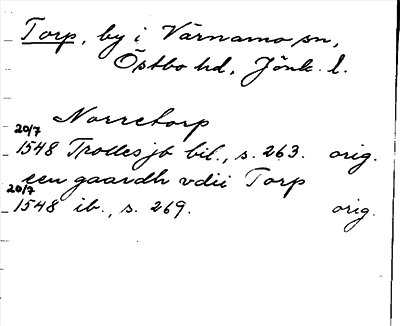 Torp, by i Värnamo sn,
Östbo hd, Jönk. l.
Norretorp
20/7
1548 Trolles jb bil., s. 263. orig.
een gaardh vdii Torp
20/7
1548 ib., s. 269. orig.